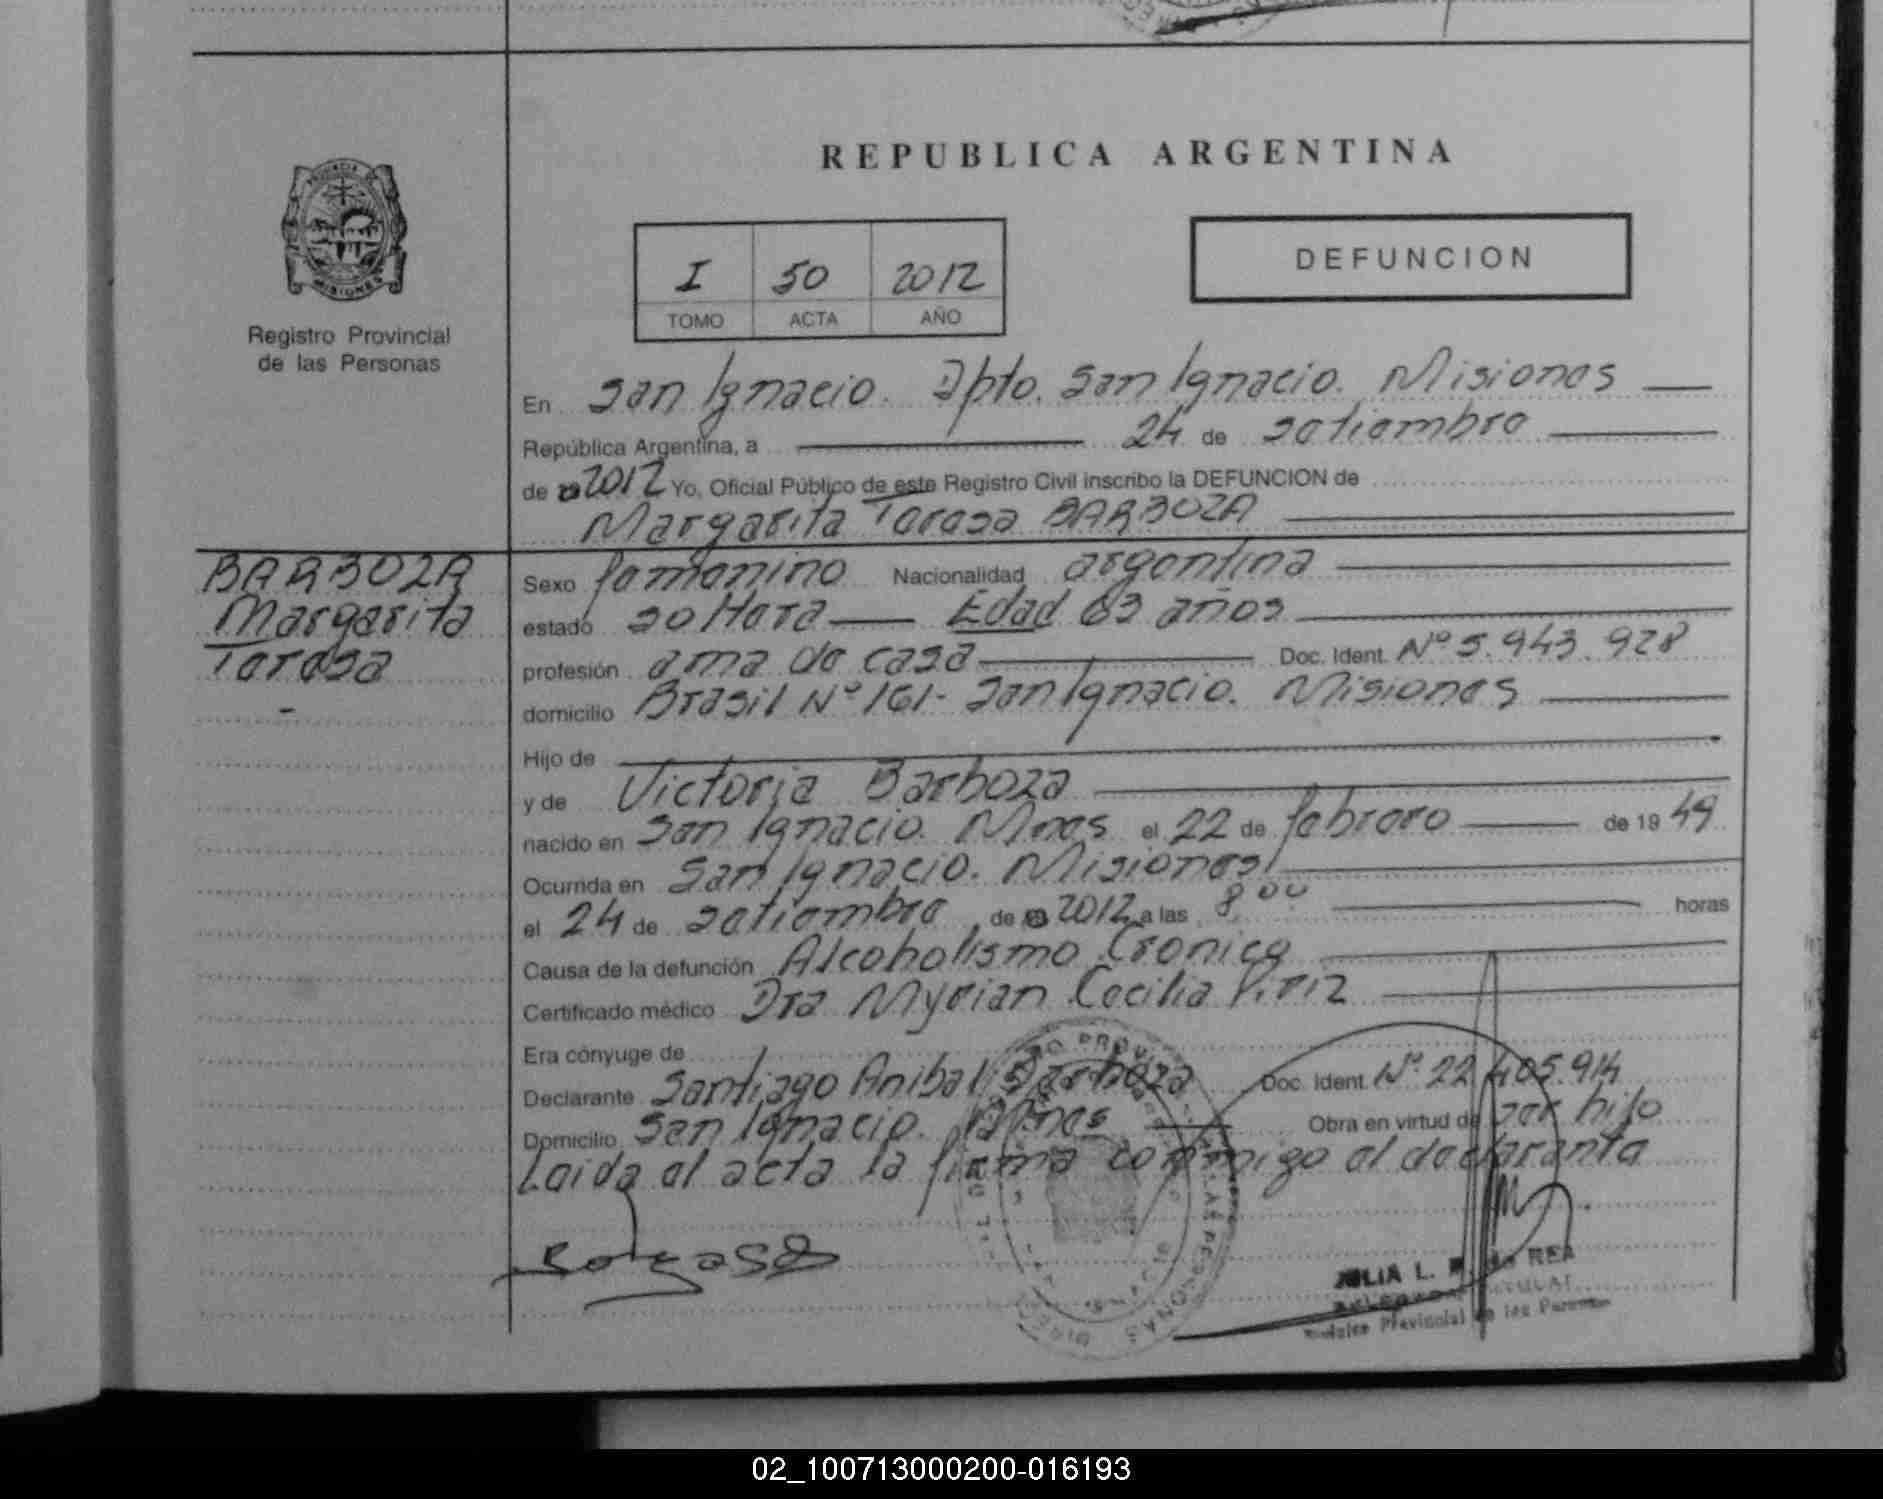 REPUBLICA ARGENTINA
PROVINCIA DE
MISIONES
Registro Provincial
de las Personas
I 50 2012
TOMO ACTA AÑO
DEFUNCION
En San Ignacio. Dpto. San Ignacio. Misiones
República Argentina, a 24 de setiembre
de 2012 Yo, Oficial Público de este Registro Civil inscribo la DEFUNCION de
Margarita Teresa BARBOZA
BARBOZA
Margarita
Teresa
Sexo femenino Nacionalidad argentina
estado soltera Edad 63 años
profesión ama de casa Doc. Ident. Nº 5.943.928
domicilio Brasil Nº 161- San Ignacio. Misiones
Hijo de
y de Victoria Barboza
nacido en San Ignacio. Mnes el 22 de febrero de 1949
Ocurrida en San Ignacio. Misiones
el 24 de setiembre de 2012 a las 8 00 horas
Causa de la defunción Alcoholismo Cronico
Certificado médico Dra Myrian Cecilia Piriz
Era cónyuge de
Declarante Santiago Anibal Barboza Doc. Ident. Nº 22.405.914
Domicilio San Ignacio. Mnes Obra en virtud de ser hijo
Leida el acta la firma conmigo el declarante
JULIA L. de REA
Provincial de las Personas
02_100713000200-016193